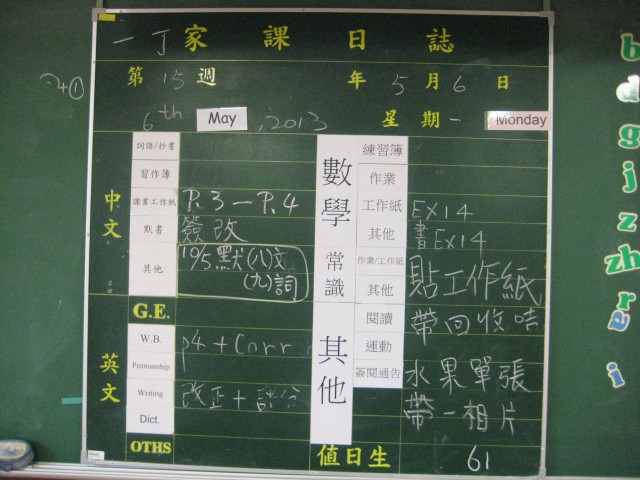 一丁 家課日誌
第 15 週 年 5 月 6 日
6th May, 2013 星期一 Monday
中文
詞語/抄書
習作簿
課業工作紙 P.3—P.4
默書 簽改
其他 10/5默(八)文
(九)詞
G.E.
英文
W.B. p4 + Corr
Penmanship
Writing 改正+
Dict.
OTHS
數學
練習簿
作業
工作紙 EX14
其他 書EX14
常識
作業/工作紙 貼工作紙
其他
其他
閱讀 帶回收咭
運動
簽閱通告 水果單張
帶一相片
值日生 61
b
d
g
j
z
zh
r
i